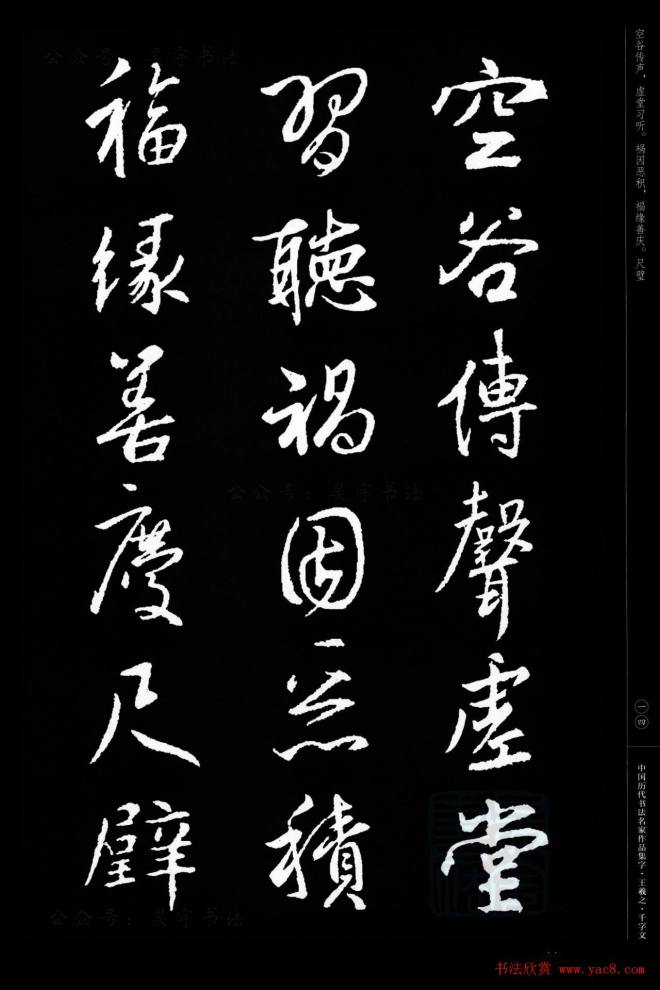 空谷傳聲虛堂
習聽禍因惡積
福緣善慶尺璧
空谷传声，虚堂习听。祸因恶积，福缘善庆。尺璧
一四
中国历代书法名家作品集字·王羲之·千字文
公众号：昊宇书法
公众号：昊宇书法
公众号：昊宇书法
书法欣赏 www.yac8.com